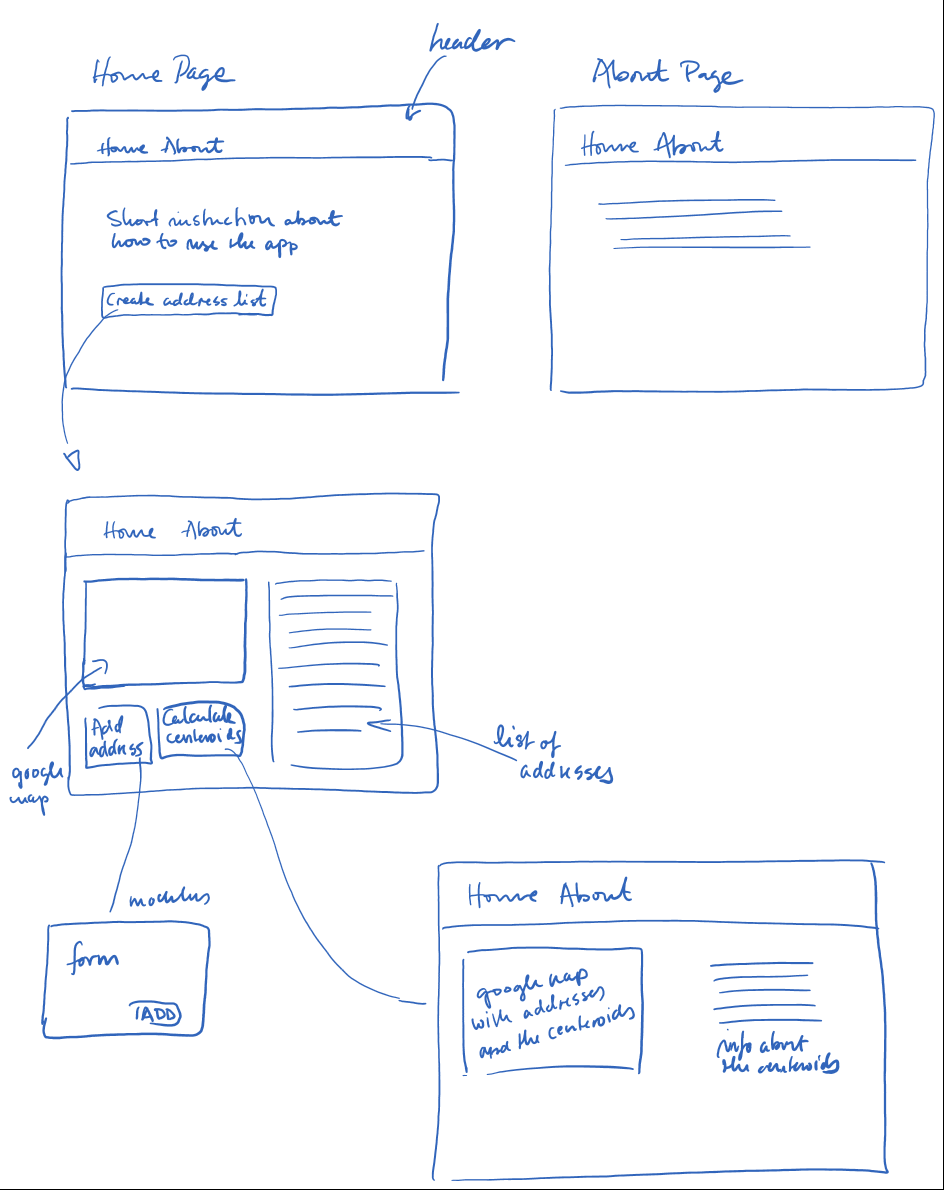 header
Home Page
About Page
Home About
Home About
Short instruction about
how to use the app
Create address list
Home About
Add
address
Calculate
centeroids
google
map
list of
addresses
modulus
form
ADD
Home About
google map
with addresses
and the centeroids
info about
the centeroids